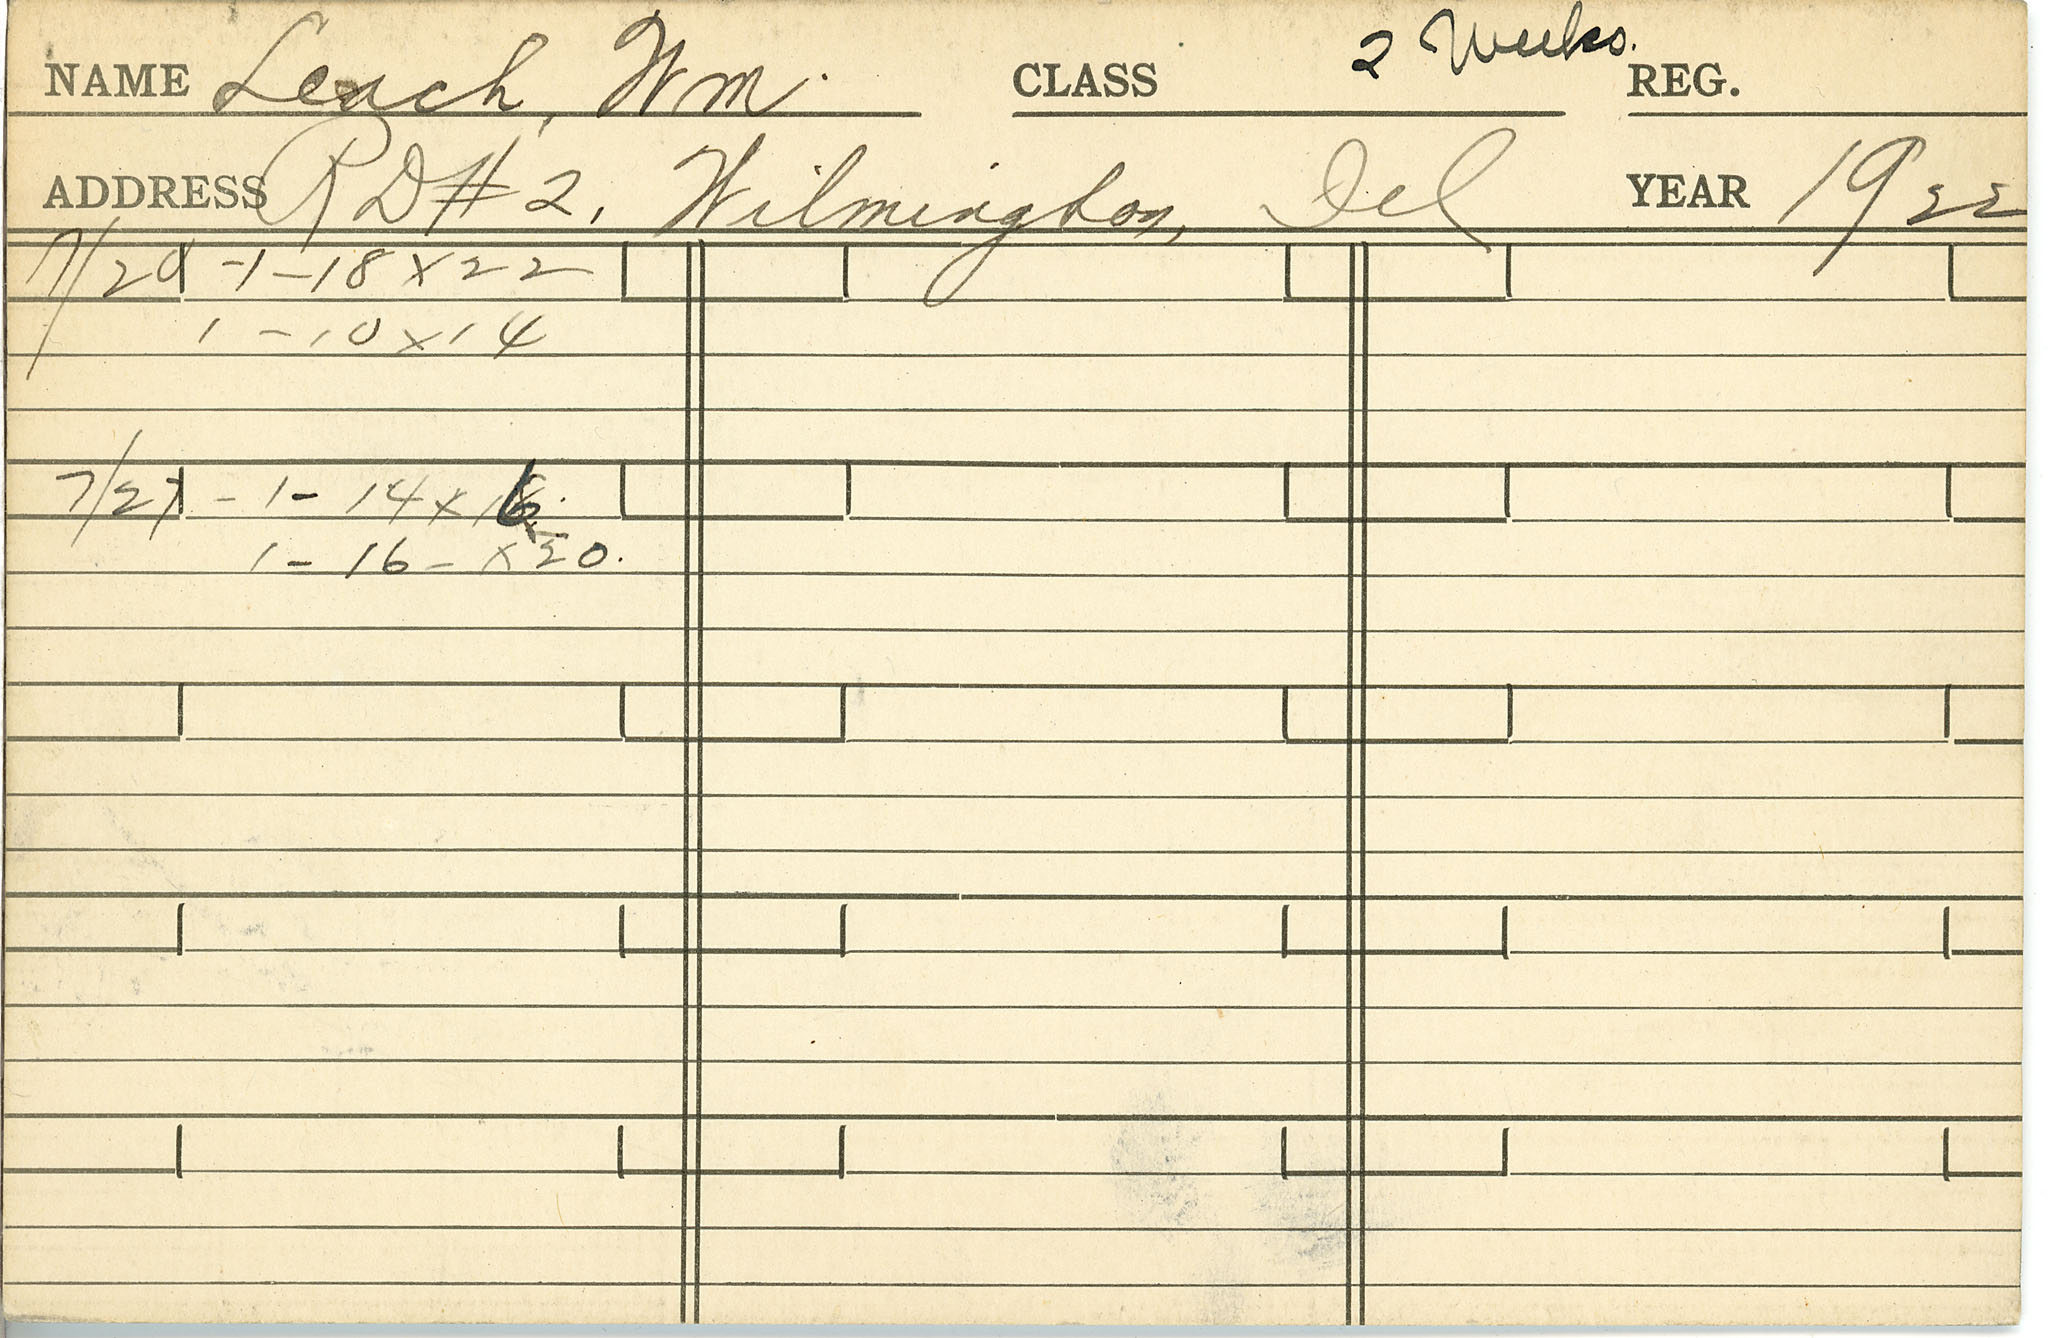 NAME Leach, Wm. CLASS 2 Weeks. REG.
ADDRESS RD#2, Wilmington, Del YEAR 1922
7/20 -1-18x22
1-10x14
7/27 -1- 14x
1-16-x20.